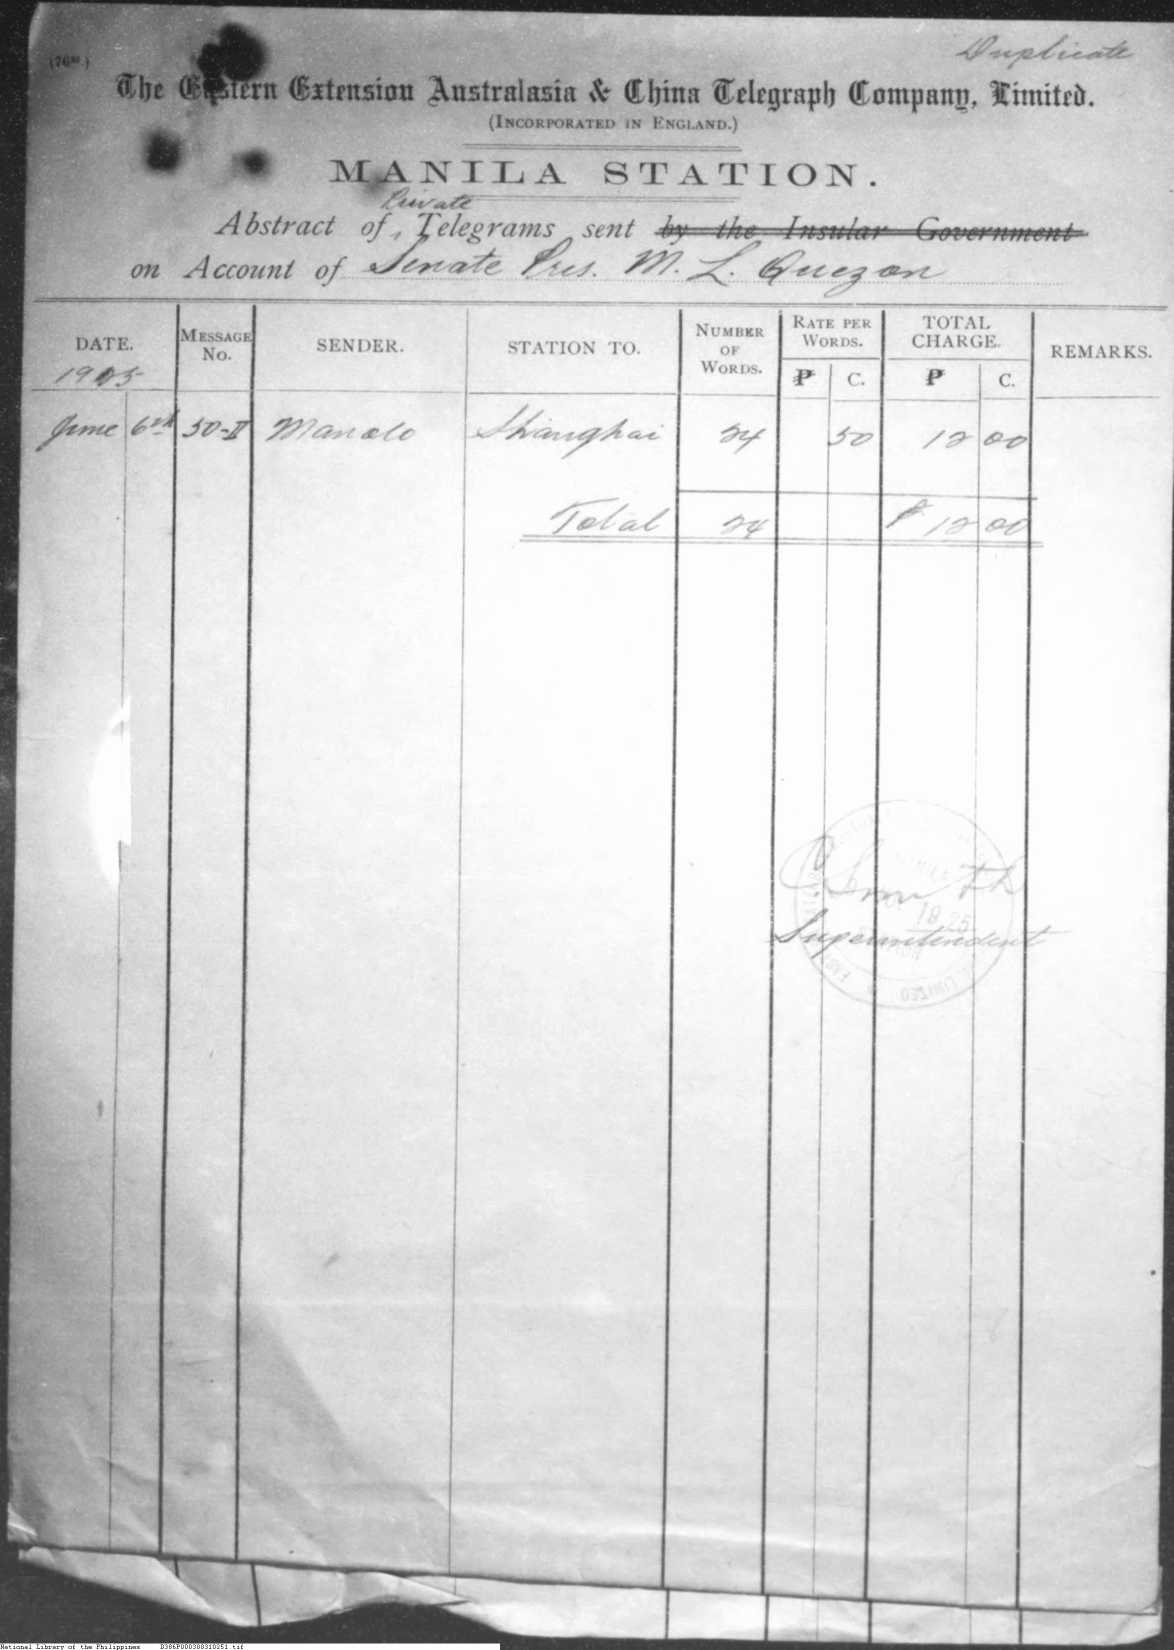 Duplicate
The Eastern Extension Australasia & China Telegraph Company, Limited.
(INCORPORATED IN ENGLAND.)
MANILA STATION.
Private
Abstract of Telegrams sent by the Insular Government
on Account of Senate Pres. M. L. Quezon
DATE. MESSAGE No. SENDER. STATION TO. NUMBER OF WORDS. RATE PER WORDS. TOTAL CHARGE. REMARKS.
1925 ₱ C. ₱ C.
June 6th 50-II Manolo Shanghai 24 50 12 00
Total 24 ₱ 12 00
Smith
Superintendent
LIMITED
National Library of the Philippines D386P000308310251.tif